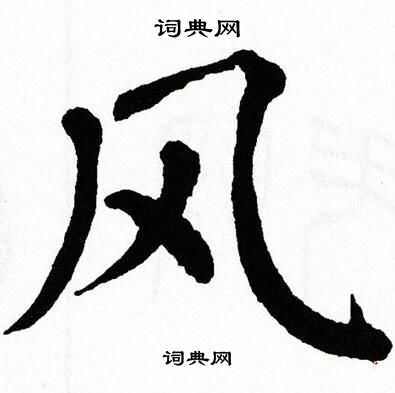 词典网
风
词典网